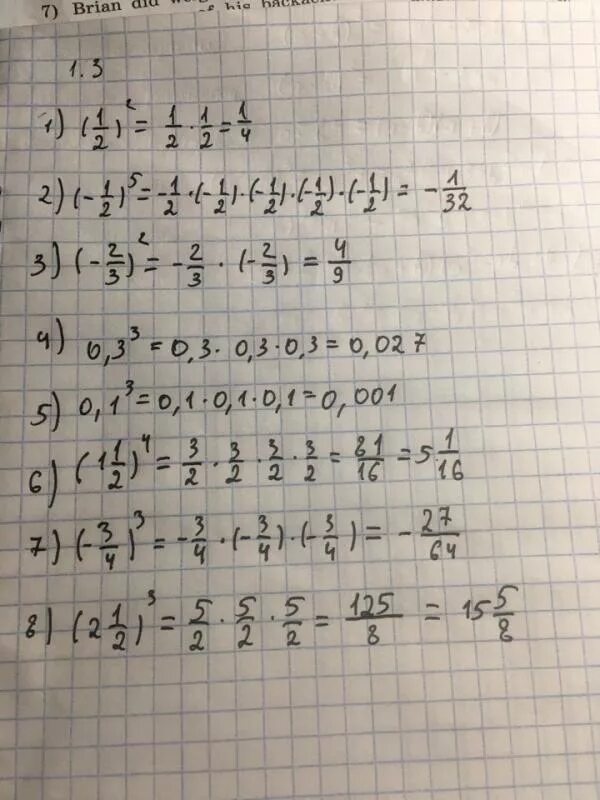 7) Brian did
of his
1.3
1) (1/2)² = 1/2 · 1/2 = 1/4
2) (-1/2)⁵ = -1/2 · (-1/2) · (-1/2) · (-1/2) · (-1/2) = -1/32
3) (-2/3)² = -2/3 · (-2/3) = 4/9
4) 0,3³ = 0,3 · 0,3 · 0,3 = 0,027
5) 0,1³ = 0,1 · 0,1 · 0,1 = 0,001
6) (1 1/2)⁴ = 3/2 · 3/2 · 3/2 · 3/2 = 81/16 = 5 1/16
7) (-3/4)³ = -3/4 · (-3/4) · (-3/4) = -27/64
8) (2 1/2)³ = 5/2 · 5/2 · 5/2 = 125/8 = 15 5/8